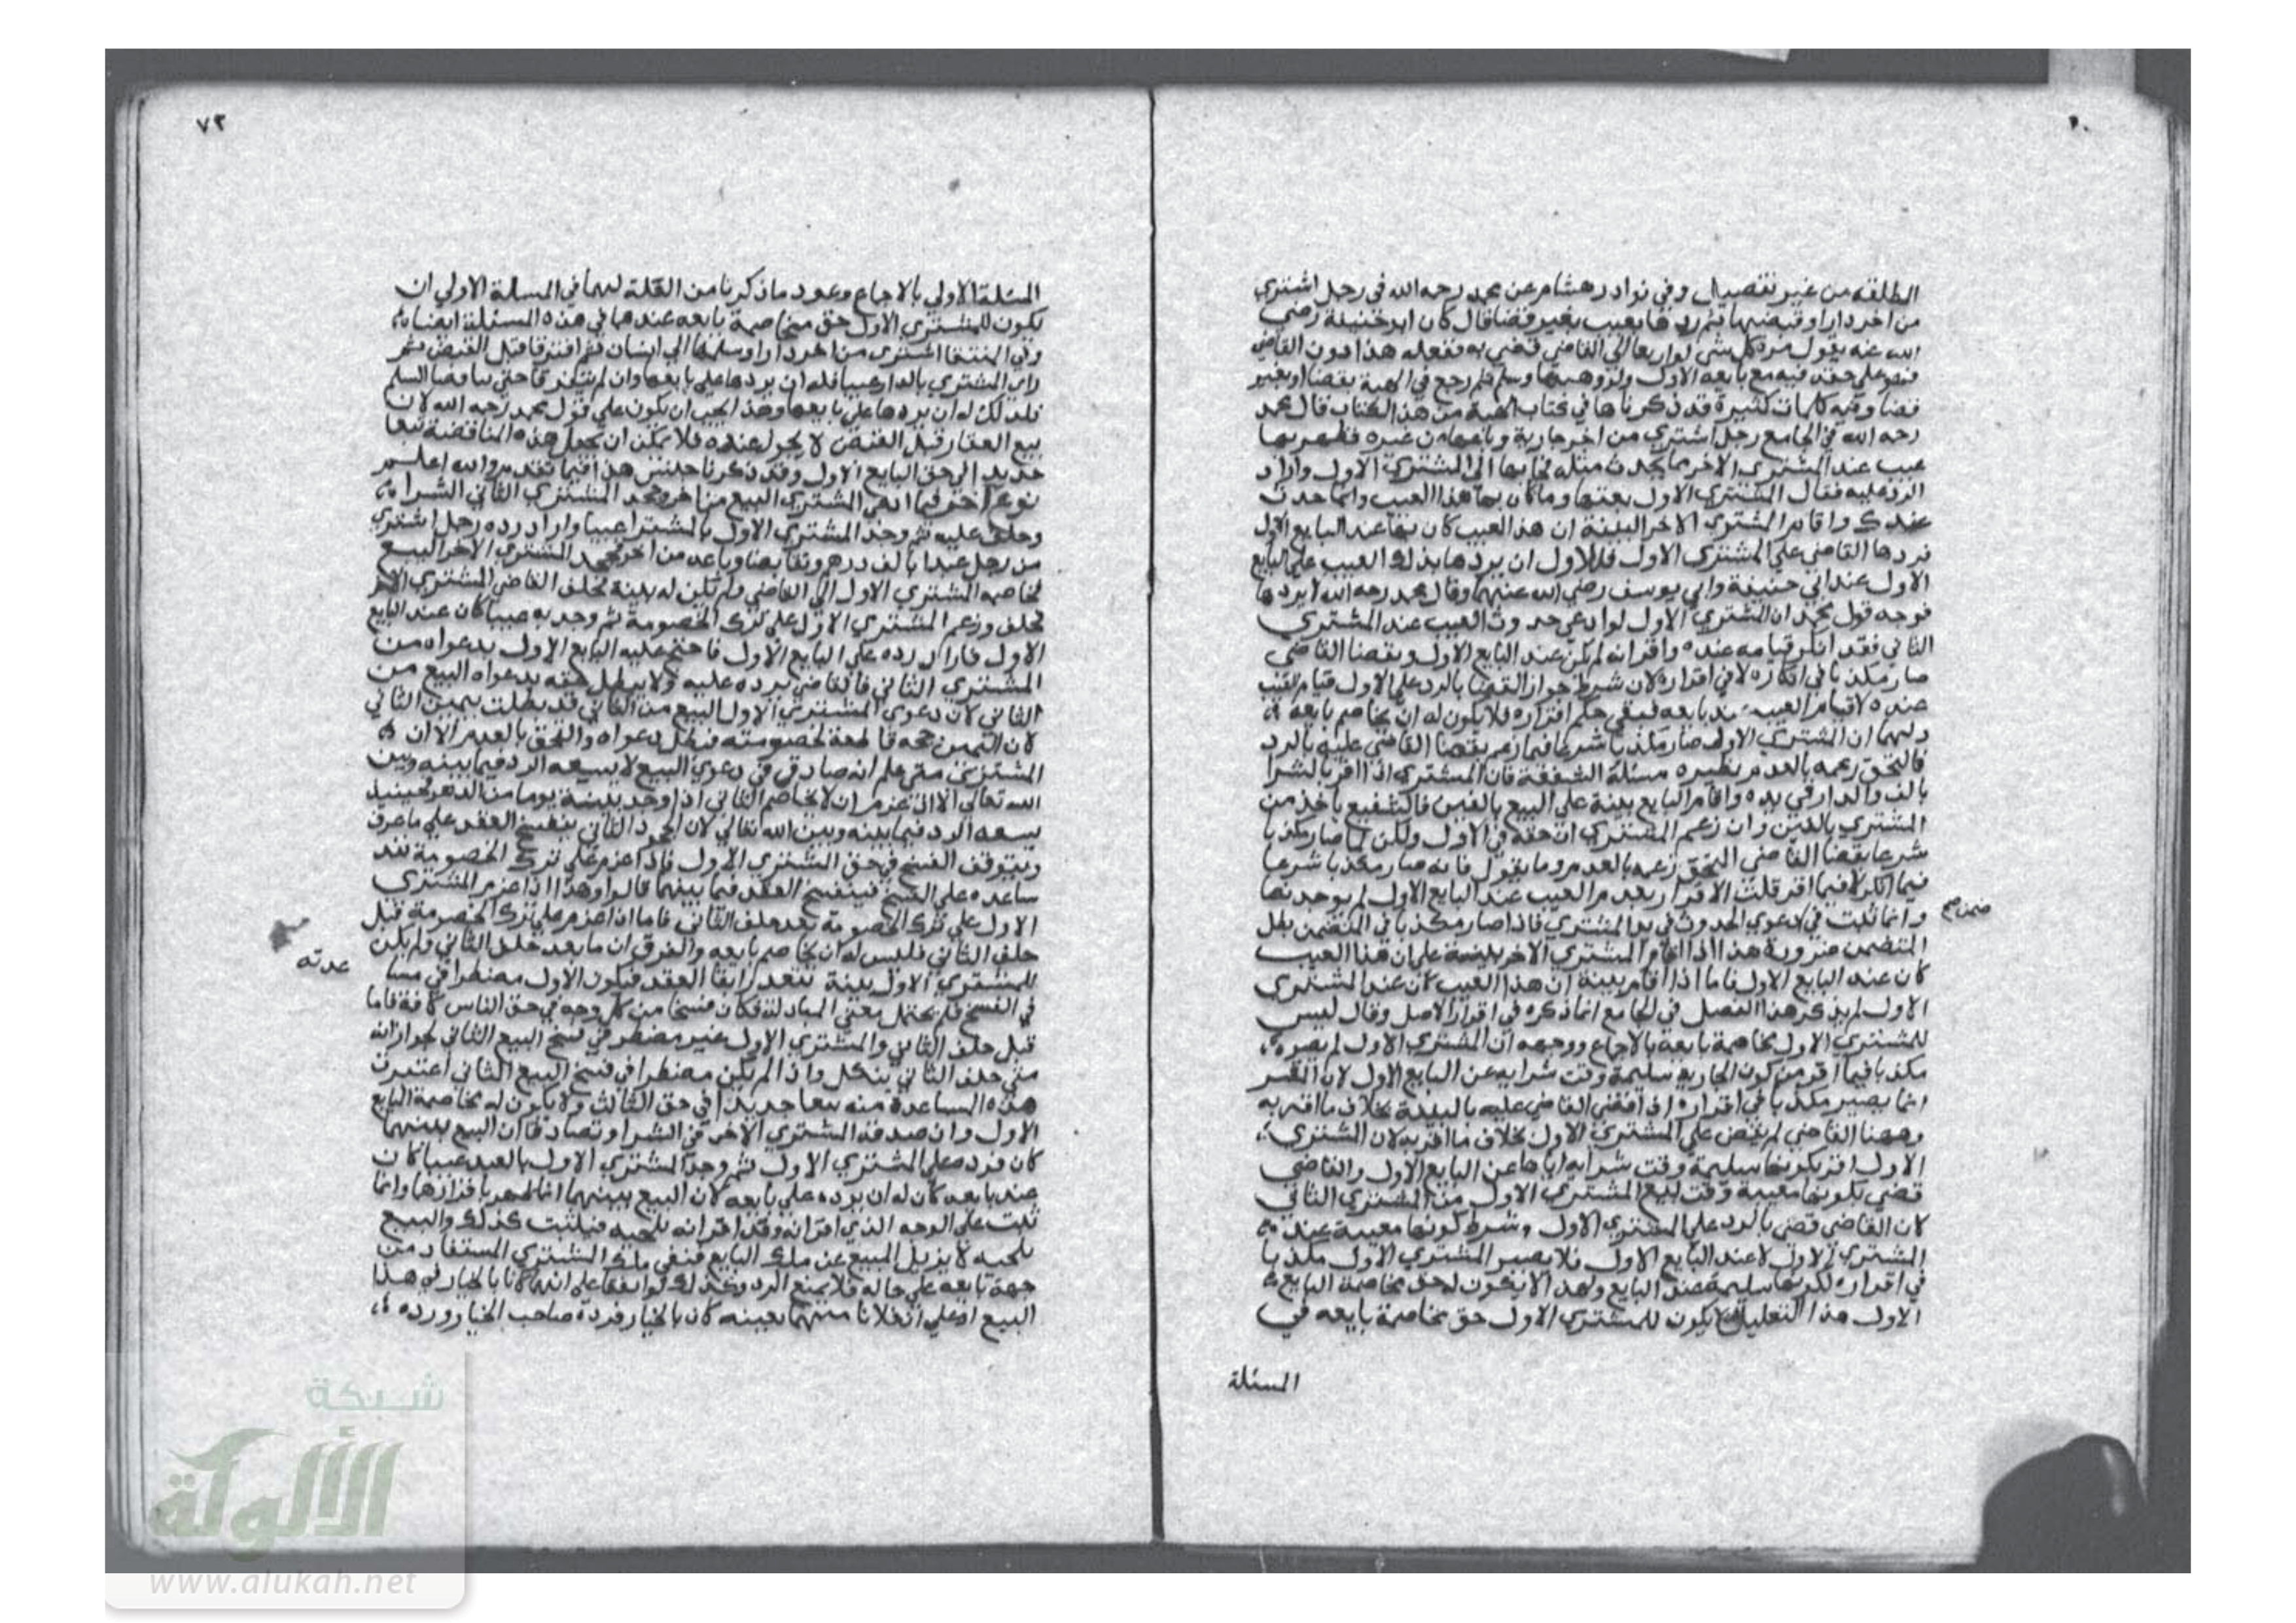 الطلقه من غير تفصيل وفي نوادر هشام عن محمد رحمه الله في رجل اشترى
من اخر دارا وقبضها ثم ردها بعيب بغير قضا قال كان ابو حنيفة رضي
الله عنه يقول مرة كل شي لو اربعا الي القاضي قضي به ففعله هذا دون القاضي
فهو علي حقه فيه مع بايعه الاول ولو وهبها وسلم ثم رجع في الهبة بقضا او بغير
قضا وفيه كلمات كثيرة قد ذكرناها في كتاب الهبة من هذا الكتاب قال محمد
رحمه الله في الجامع رجل اشتري من اخر جارية وباعها من غيره فظهر بها
عيب عند المشتري الاخر مما يحدث مثله فجا بها الي المشتري الاول واراد
الرد عليه فقال المشتري الاول بعتها وما كان بها هذا العيب وانما حدث
عندك واقام المشتري الاخر البينة ان هذا العيب كان بها عند البايع الاول
فردها القاضي علي المشتري الاول فللاول ان يردها بذلك العيب علي البايع
الاول عند ابي حنيفة وابي يوسف رضي الله عنهما وقال محمد رحمه الله لا يردها
فوجه قول محمد ان المشتري الاول لو ادعي حدوث العيب عند المشتري
الثاني فقد انكر قيامه عنده واقر انه لم يكن عند البايع الاول وبقضا القاضي
صار مكذبا في انكاره لا في اقراره لان شرط جواز القضا بالرد علي الاول قيام العيب
عنده لا قيام العيب عند بايعه فبقي حكم اقراره فلا يكون له ان يخاصم بايعه
ولهما ان المشتري الاول صار مكذبا شرعا فيما زعم بقضا القاضي عليه بالرد
فالتحق زعمه بالعدم نظيره مسئلة الشفعة فان المشتري اذا اقر بالشرا
بالف والدار في يده واقام البايع بينة علي البيع بالفين فالشفيع ياخذ من
المشتري بالفين وان زعم المشتري ان حقه في الاول ولكن لما صار مكذبا
شرعا بقضا القاضي التحق زعمه بالعدم وما يقول فانه صار مكذبا شرعا
فيما انكر لا فيما اقر قلت الاقرار بعدم العيب عند البايع الاول لم يوجد نصا
وانما ثبت في دعوي الحدوث في يد المشتري فاذا صار مكذبا في المتضمن بطل
المتضمن ضرورة هذا اذا اقام المشتري الاخر بينة علي ان هذا العيب
كان عند البايع الاول فاما اذا اقام بينة ان هذا العيب كان عند المشتري
الاول لم يذكر هذا الفصل في الجامع انما ذكره في اقرار الاصل وقال ليس
للمشتري الاول مخاصمة بايعه بالاجماع ووجهه ان المشتري الاول لم يصر
مكذبا فيما اقر من كون الجارية سليمة وقت شرايه عن البايع الاول لان المقر
انما يصير مكذبا في اقراره اذا قضي القاضي عليه بالبينة بخلاف ما اقر به
وههنا القاضي لم يقض علي المشتري الاول بخلاف ما اقر به لان المشتري
الاول اقر بكونها سليمة وقت شرايه اياها عن البايع الاول والقاضي
قضي بكونها معيبة وقت بيع المشتري الاول من المشتري الثاني
كان القاضي قضي بالرد علي المشتري الاول وشرط كونها معيبة عند
المشتري الاول لا عند البايع الاول فلا يصير المشتري الاول مكذبا
في اقراره لكونها سليمة عند البايع ولهذا لا يكون له حق مخاصمة البايع
الاول هذا التعليل يكون للمشتري الاول حق مخاصمة بايعه في
المسئلة
٧٢
المسئلة الاولي بالاجماع وعود ما ذكرنا من العلة لهما في المسلة الاولي ان
يكون للمشتري الاول حق مخاصمة بايعه عندهما في هذه المسئلة ايضا
وفي المنتقا اشتري من اخر دارا وسلمها الي انسان ثم افترقا قبل القبض ثم
راي المشتري بالدار عيبا فله ان يردها علي بايعها وان لم يتفرقا حتي تناقضا السلم
فلذلك له ان يردها علي بايعها وهذا يجب ان يكون علي قول محمد رحمه الله لان
بيع العقار قبل القبض لا يجوز عنده فلا يمكن ان تجعل هذه المناقضة بيعا
جديدا في حق البايع الاول وقد ذكرنا جنس هذا فيما تقدم والله اعلم
نوع اخر فيما ادعي المشتري البيع من اخر وجحد المشتري الثاني الشرا
وحلف عليه ثم وجد المشتري الاول بالمشترا عيبا واراد رده رجل اشتري
من رجل عبدا بالف درهم وتقابضا وباعه من اخر فجحد المشتري الاخر البيع
فخاصمه المشتري الاول الي القاضي ولم تكن له بينة فحلف القاضي المشتري الاخر
فحلف وزعم المشتري الاول علي ترك الخصومة ثم وجد به عيبا كان عند البايع
الاول فاراد رده علي البايع الاول فاحتج عليه البايع الاول بدعواه من
المشتري الثاني فالقاضي يرده عليه ولا يبطل حقه بدعواه البيع من
الثاني لان دعوي المشتري الاول البيع من الثاني قد بطلت بيمين الثاني
لان اليمين حجة قاطعة لخصومته فبطل دعواه والتحق بالعدم الا ان
المشتري متي علم انه صادق في دعوي البيع لا يسعه الرد فيما بينه وبين
الله تعالي الا ان عزم ان لا يخاصم الثاني اذا وجد بينة يوما من الدهر فحينئذ
يسعه الرد فيما بينه وبين الله تعالي لان الجحود الثاني ينفسخ العقد علي ما عرف
ويتوقف الفسخ في حق المشتري الاول فاذا عزم علي ترك الخصومة فقد
ساعده علي الفسخ فينفسخ العقد فيما بينهما قالوا وهذا اذا عزم المشتري
الاول علي ترك الخصومة بعد حلف الثاني فاما اذا عزم علي ترك الخصومة قبل
حلف الثاني فليس له ان يخاصم بايعه والفرق ان ما بعد حلف الثاني ولم يكن
عدته
للمشتري الاول بينة تتعذر ابقا العقد فيكون الاول مضطرا في
في الفسخ فلم يحتمل معني المبادلة فكان فسخا من كل وجه في حق الناس كافة فاما
قبل حلف الثاني والمشتري الاول غير مضطر في فسخ البيع الثاني لجواز انه
متي حلف الثاني ينكل واذا لم يكن مضطرا في فسخ البيع الثاني اعتبرت
هذه المساعدة منه بيعا جديدا في حق الثالث ولا يكون له مخاصمة البايع
الاول وان صدقه المشتري الاخر في الشرا وتصادقا ان البيع بينهما
كان فرده علي المشتري الاول ثم وجد المشتري الاول بالعبد عيبا كان
عند بايعه كان له ان يرده علي بايعه لان البيع بينهما انما ظهر باقرارهما وانما
ثبت علي الوجه الذي اقرا به وقد اقرا انه تلجيه فيثبت كذلك والبيع
تلجيه لا يزيل المبيع عن ملك البايع فبقي ملك المشتري المستفاد من
جهة بايعه علي حاله فلا يمنع الرد وكذلك لو اتفقا علي انهما كانا بالخيار في هذا
البيع او علي ان فلانا منهما بعينه كان بالخيار فرده صاحب الخيار ورده
شبكة
الألوكة
www.alukah.net